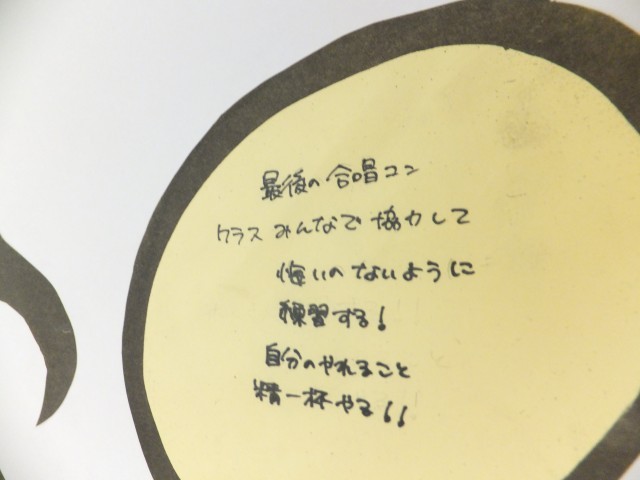 最後の合唱コン
クラスみんなで協力して
悔いのないように
練習する!
自分のやれること
精一杯やる!!